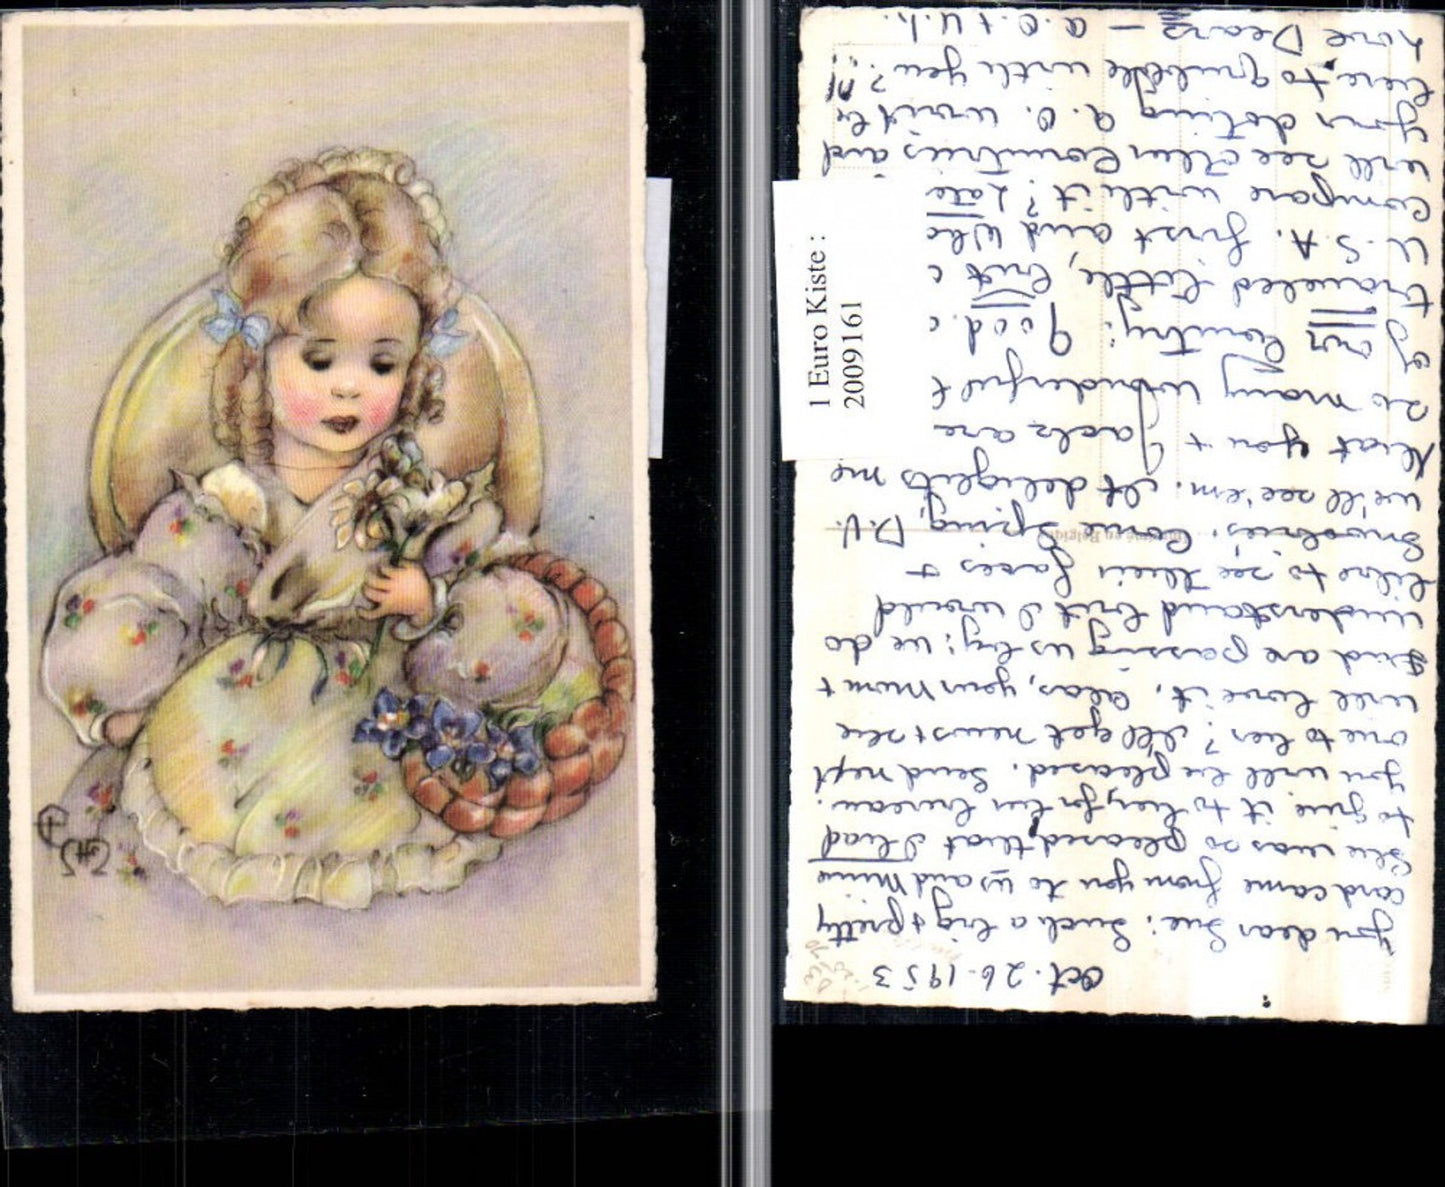 Oct. 26. 1953
You dear Sue: Such a big & pretty
card came from you to us and Mimi
She was so pleased that I had
to give it to hey for her bureau.
you will be pleased. Send next
one to her? I'll get news & she
will love it. Alas, your Mum &
Dad are passing us by; we do
understand but I would
like to see their faces &
Smoothies. Come Spring, D.V.
we'll see 'em. It delights me
that you & Jack are
so many wonderful
of our Country: Good.
traveled little, but
U.S.A. first and Who
Compare with it? Late
will see other Countries and
Your doting A.O. won't be
here to quibble with you?!!
Love Dears — A.O. & U.h.
en Belgi
1 Euro Kiste :
20091161